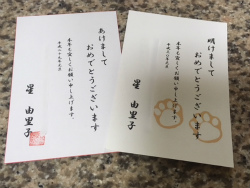 あけまして
おめでとうございます
本年も宜しくお願い申し上げます。
平成二十九年元旦
星 由里子
明けまして
おめでとうございます
本年も宜しくお願い申し上げます。
星 由里子